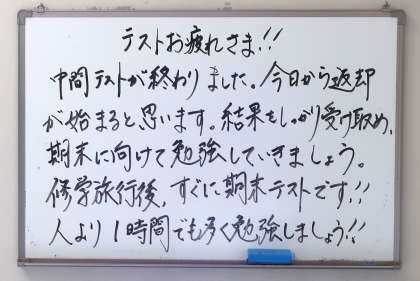 テストお疲れさま!!
中間テストが終わりました。今日から返却
が始まると思います。結果をしっかり受け取め、
期末に向けて勉強していきましょう。
修学旅行後、すぐに期末テストです!!
人より1時間でも多く勉強しましょう!!